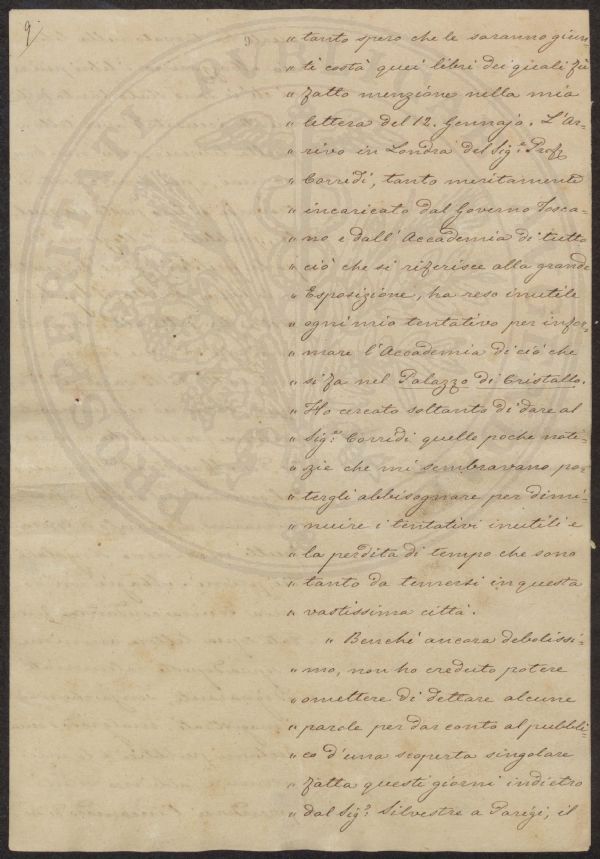 9
" tanto spero che le saranno giun-
" ti costà quei libri dei quali fù
" fatto menzione nella mia
" lettera del 12. Gennajo. L'Ar-
" rivo in Londra del Sig.r Prof.
" Corridi, tanto meritamente
" incaricato dal Governo Tosca-
" no e dall'Accademia di tutto
" ciò che si riferisce alla grande
" Esposizione, ha reso inutile
" ogni mio tentativo per infor-
" mare l'Accademia di ciò che
" si fa nel Palazzo di Cristallo.
" Ho cercato soltanto di dare al
" Sig.r Corridi quelle poche noti-
" zie che mi sembravano po-
" tergli abbisognare per dimi-
" nuire i tentativi inutili e
" la perdita di tempo che sono
" tanto da temersi in questa
" vastissima città.
" Benchè ancora debolissi-
" mo, non ho creduto potere
" omettere di dettare alcune
" parole per dar conto al pubbli-
" co d'una scoperta singolare
" fatta questi giorni indietro
" dal Sig.r Silvestre a Parigi, il
PROSPERITATI